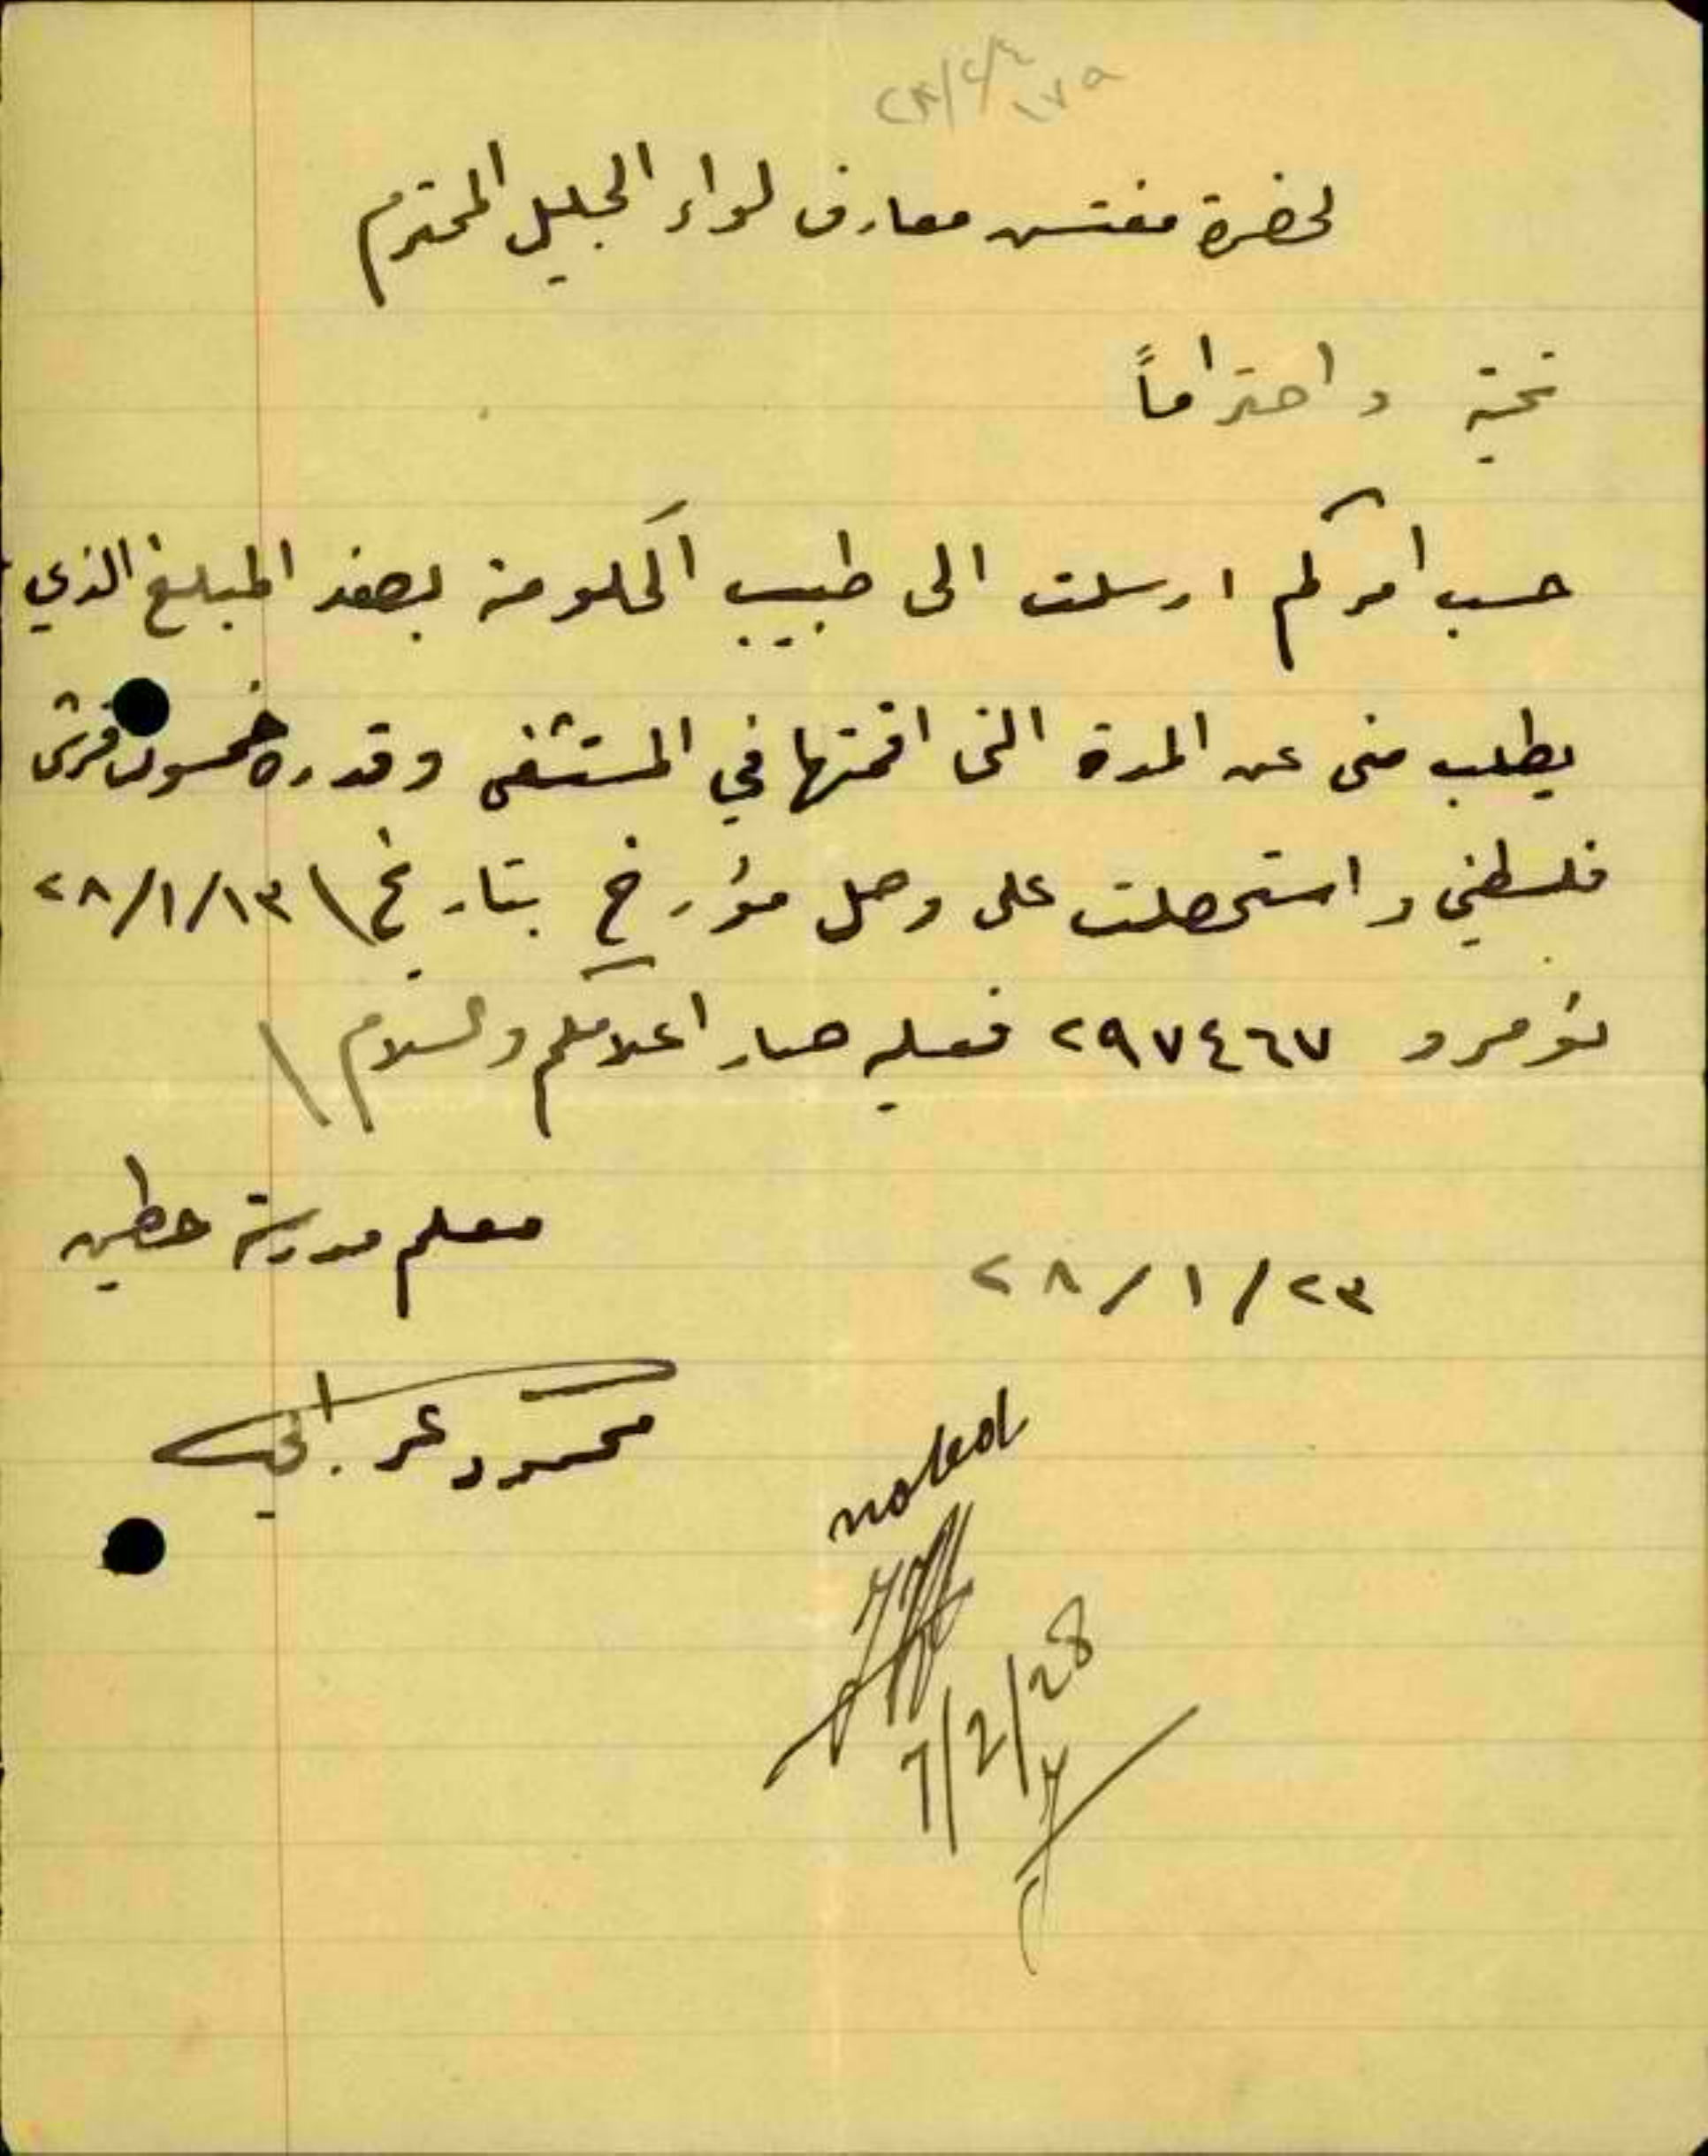 لحضرة مفتش معارف لواء الجليل المحترم
تحية و احتراماً
حسب امركم ارسلت الى طبيب الحكومة بصفد المبلغ الذي
يطلب منى عن المدة التى اقمتها في المستشفى وقدره خمسون قرش
فلسطيني و استحصلت على وصل مؤرخ بتاريخ \ ٢٨/١/١٣
نومرو ٢٩٧٤٦٧ فعليه صار اعلامكم والسلام \
معلم مدرسة حطين
٢٨/١/٢٣
محمود عرابي
noted
7/2/28